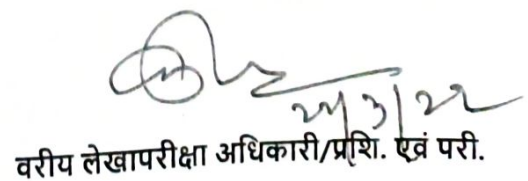 वरीय लेखापरीक्षा अधिकारी/प्रशि. एवं परी.